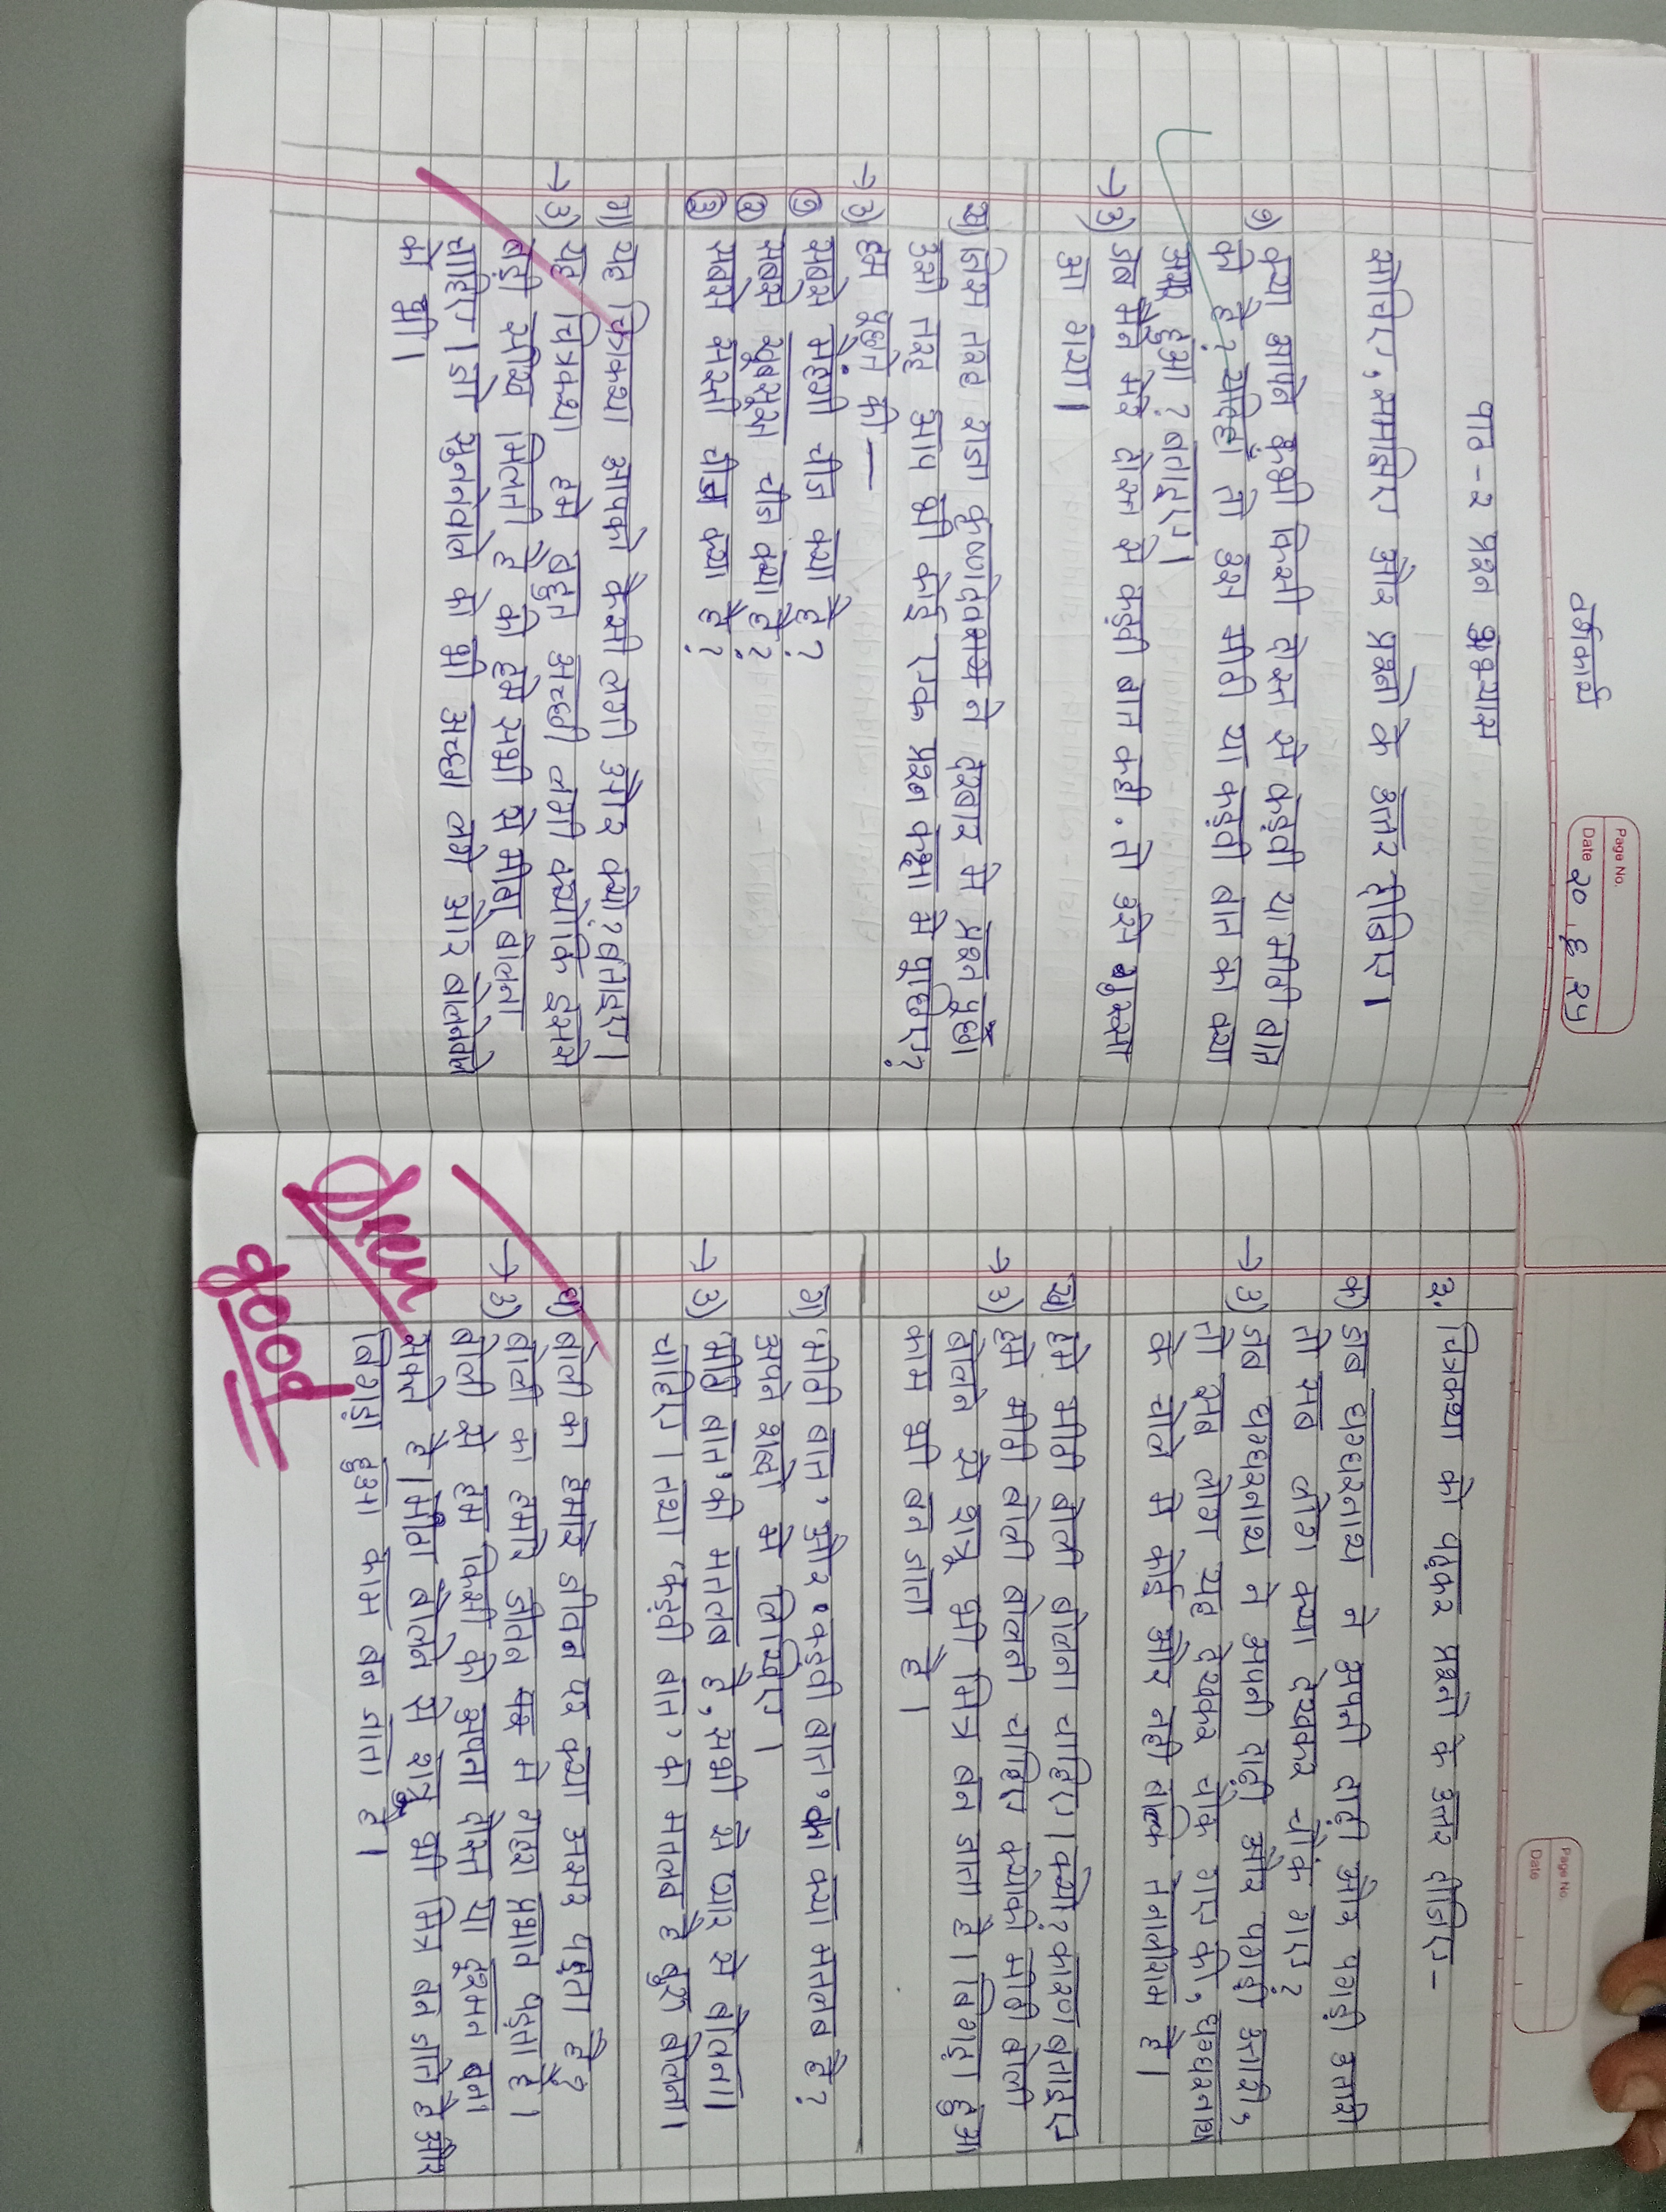 वर्गकार्य
Page No.
Date २०.६.२५
पाठ-२ प्रश्न अभ्यास
सोचिए, समझिए और प्रश्नो के उत्तर दीजिए।
१) क्या आपने कभी किसी दोस्त से कड़वी या मीठी बात
की है? यदि हाँ तो उस मीठी या कड़वी बात का क्या
असर हुआ? बताइए।
→उ) जब मैंने मेरे दोस्त से कड़वी बात कही. तो उसे गुस्सा
आ गया।
ख) जिस तरह राजा कृष्णदेवराय ने दरबार मे प्रश्न पूछा
उसी तरह आप भी कोई एक प्रश्न कक्षा मे पूछिए?
→उ) हम पूछेगे की —
१ सबसे महँगी चीज क्या है?
२ सबसे खूबसूरत चीज क्या है?
३ सबसे सस्ती चीज क्या है?
ग) यह चित्रकथा आपको कैसी लगी और क्यो? बताइए।
→उ) यह चित्रकथा हमे बहुत अच्छी लगी क्योकि इससे
बड़ी सीख मिलती है की हमे सभी से मीठा बोलना
चाहिए। जो सुननेवाले को भी अच्छा लगे और बोलनेवाले
को भी।
Page No.
Date
२. चित्रकथा को पढ़कर प्रश्नो के उत्तर दीजिए-
क) जब घग्घरनाथ ने अपनी दाढ़ी और पगड़ी उतारी
तो सब लोग क्या देखकर चौंक गए?
→उ) जब घग्घरनाथ ने अपनी दाढ़ी और पगड़ी उतारी,
तो सब लोग यह देखकर चोक गए की, घग्घरनाथ
के चोले मे कोई और नही बल्कि तेनालीराम है।
ख) हमे मीठी बोली बोलना चाहिए। क्यो? कारण बताइए
→उ) हमे मीठी बोली बोलनी चाहिए क्योकी मीठी बोली
बोलने से शत्रू भी मित्र बन जाता है। बिगड़ा हुआ
काम भी बन जाता है।
ग) 'मीठी बात' और 'कड़वी बात' का क्या मतलब है?
अपने शब्दो मे लिखिए।
→उ) 'मीठी बात' की मतलब है, सभी से प्यार से बोलना।
चाहिए। तथा 'कड़वी बात' का मतलब है बुरा बोलना।
घ) बोली का हमारे जीवन पर क्या असर पड़ता है?
→उ) बोली का हमारे जीवन पर मे गहरा प्रभाव पड़ता है।
बोली से हम किसी को अपना दोस्त या दुश्मन बना
सकते है। मीठा बोलने से शत्रू भी मित्र बन जाते है और
बिगड़ा हुआ काम बन जाता है।
good